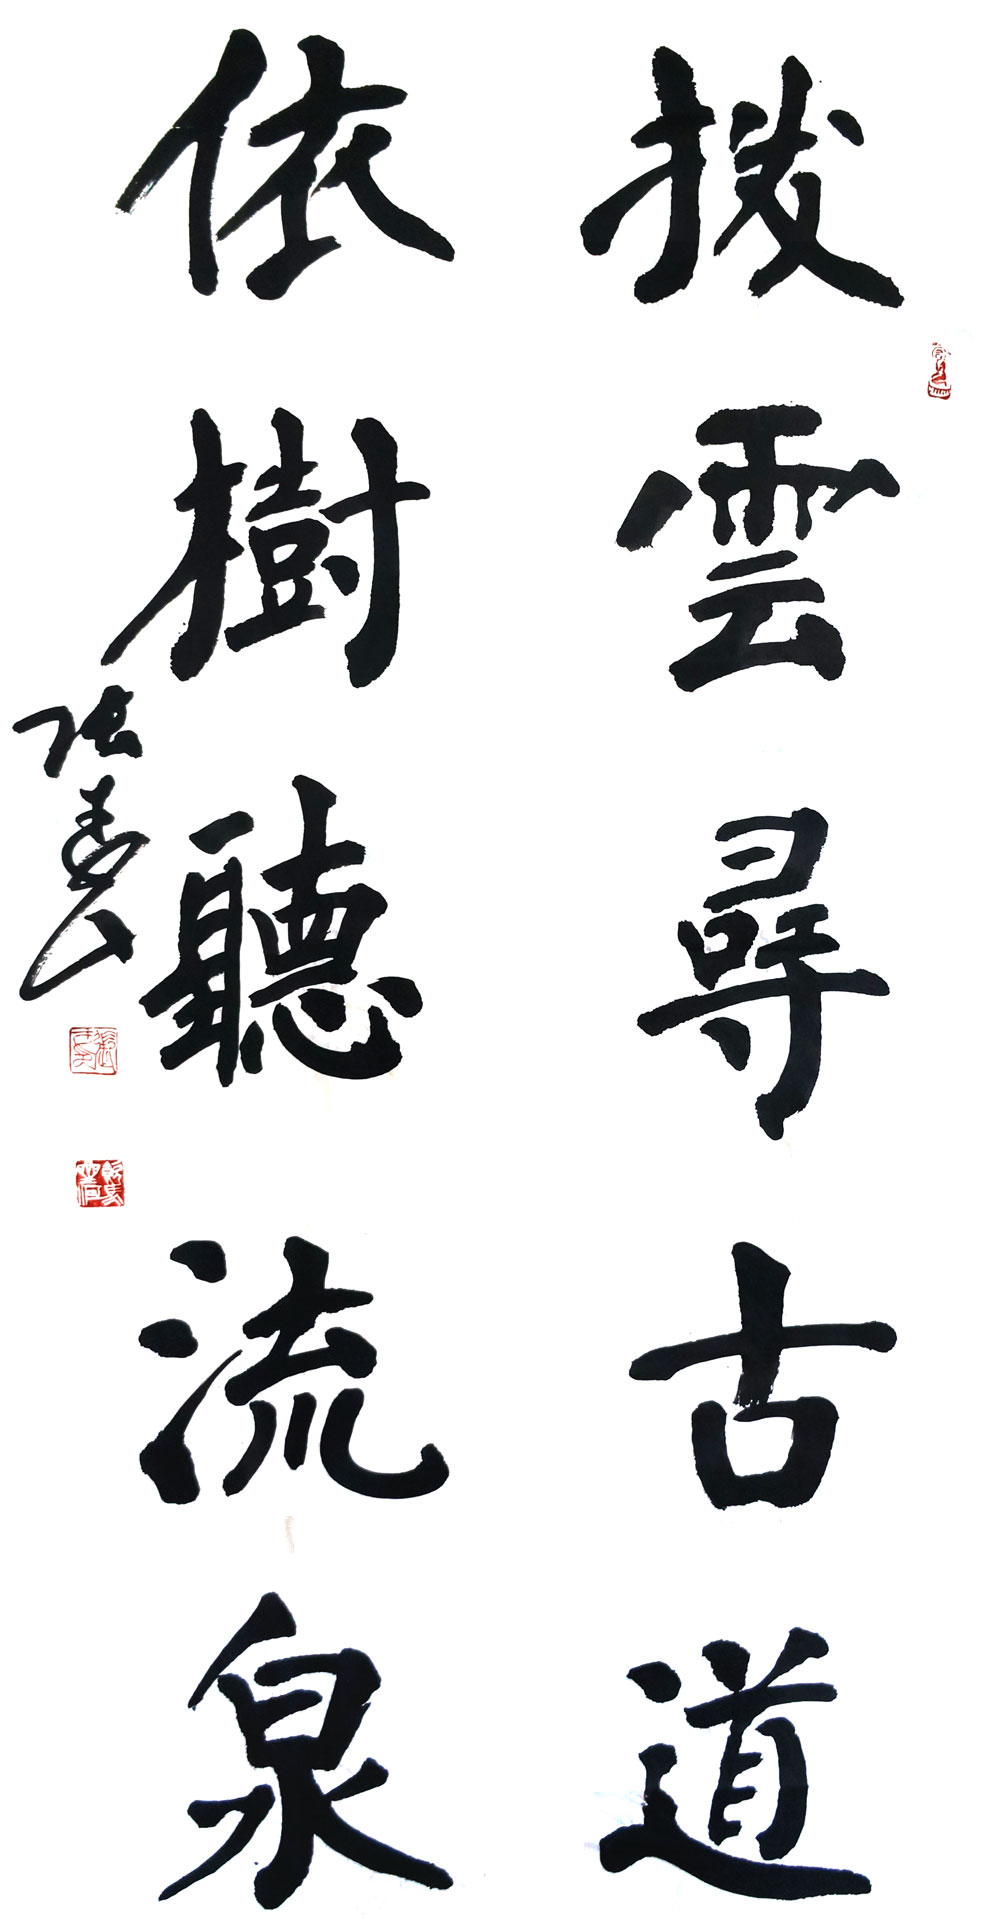 拨雲尋古道
依樹聽流泉